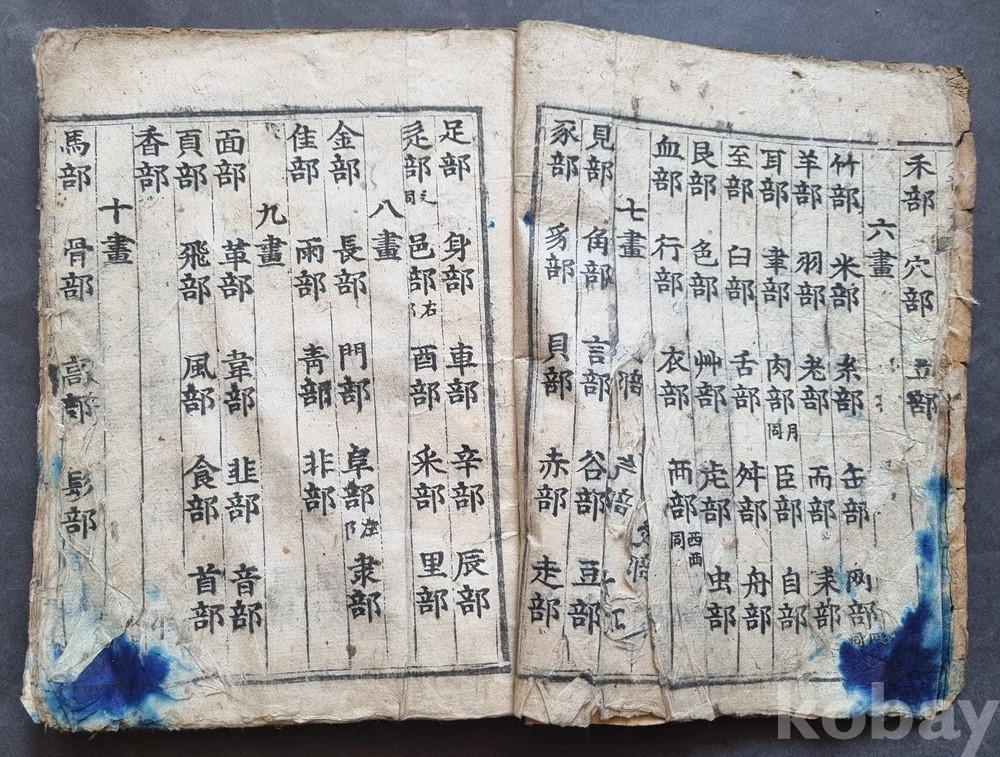 禾部 穴部 立部
六畫
竹部 米部 糸部 缶部 网部
羊部 羽部 老部 而部 耒部
耳部 聿部 肉部月同 臣部 自部
至部 臼部 舌部 舛部 舟部
艮部 色部 艸部 虍部 虫部
血部 行部 衣部 襾部西覀同
七畫
見部 角部 言部 谷部 豆部
豕部 豸部 貝部 赤部 走部
足部 身部 車部 辛部 辰部
辵部辶同 邑部右阝 酉部 釆部 里部
八畫
金部 長部 門部 阜部左阝 隶部
隹部 雨部 靑部 非部
九畫
面部 革部 韋部 韭部 音部
頁部 飛部 風部 食部 首部
香部
十畫
馬部 骨部 高部 髟部
kobay